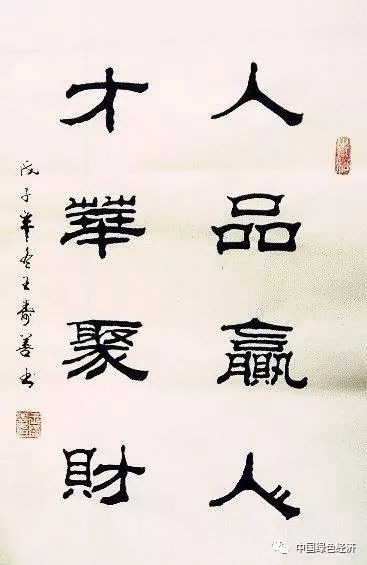 人品贏人
才華聚財
戊子冬王寿善书
中国绿色经济